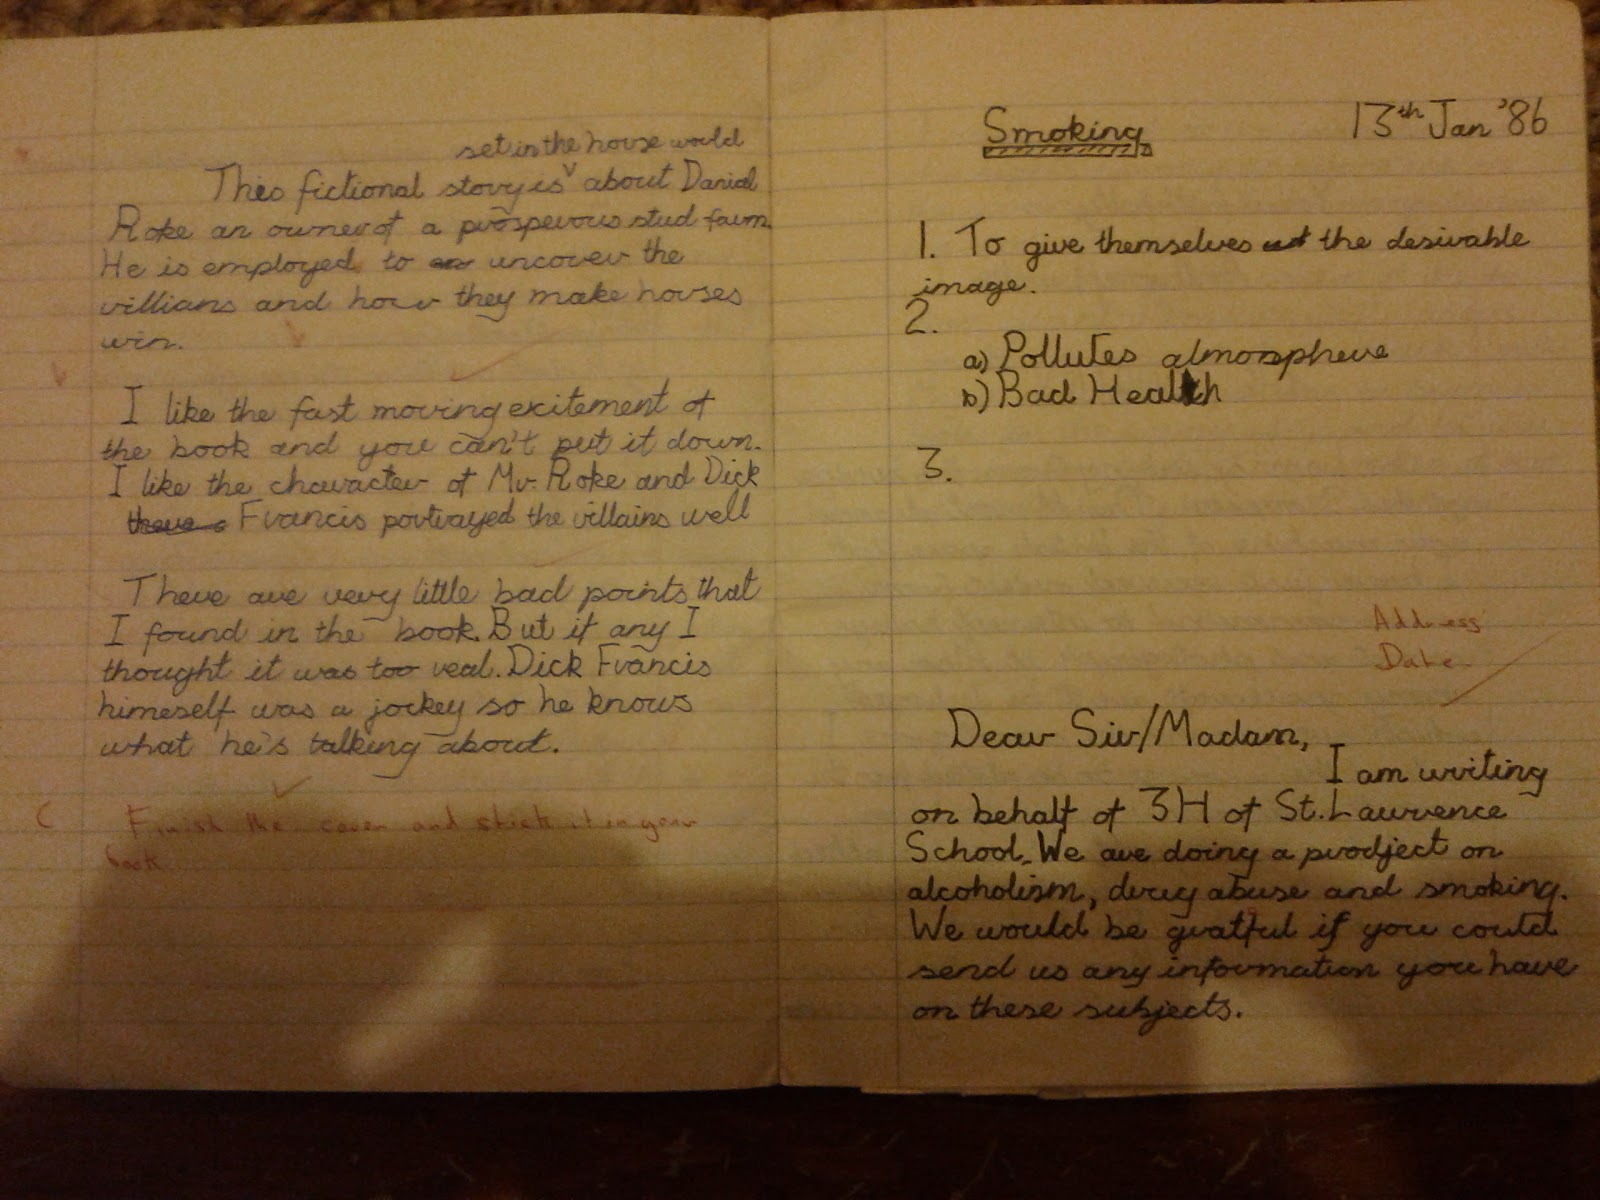 set in the horse world
This fictional story is about Danial
Roke an owner of a prosperous stud farm.
He is employed to uncover the
villians and how they make horses
win.
I like the fast moving excitement of
the book and you can't put it down.
I like the character of Mr. Roke and Dick
there Francis portrayed the villains well
There are very little bad points that
I found in the book. But if any I
thought it was too real. Dick Francis
himeself was a jockey so he knows
what he's talking about.
C Finish the cover and stick it in your
book
Smoking
13th Jan '86
1. To give themselves the desirable
image.
2.
a) Pollutes atmosphere
b) Bad Health
3.
Address
Date
Dear Sir/Madam,
I am writing
on behalf of 3H of St. Lawrence
School. We are doing a prodject on
alcoholism, drug abuse and smoking.
We would be gratful if you could
send us any information you have
on these subjects.